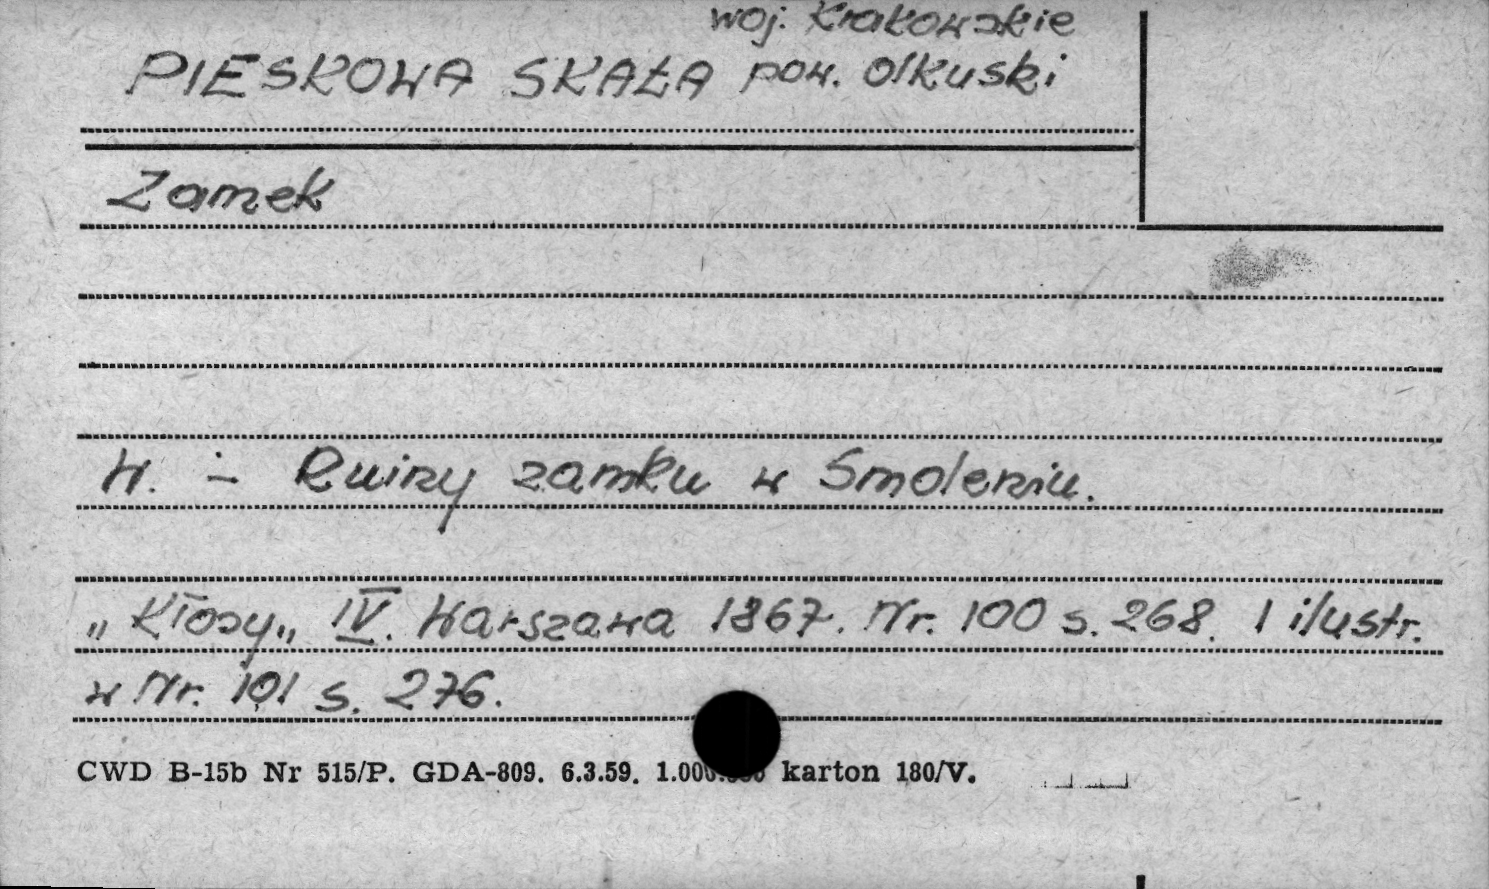 woj. Krakowskie
PIESKOWA SKAŁA pow. Olkuski
Zamek
W. - Ruiny zamku w Smoleniu.
„Kłosy„ IV. Warszawa 1867. Nr. 100 s. 268. 1 ilustr.
w Nr. 101 s. 276.
CWD B-15b Nr 515/P. GDA-809. 6.3.59. karton 180/V.